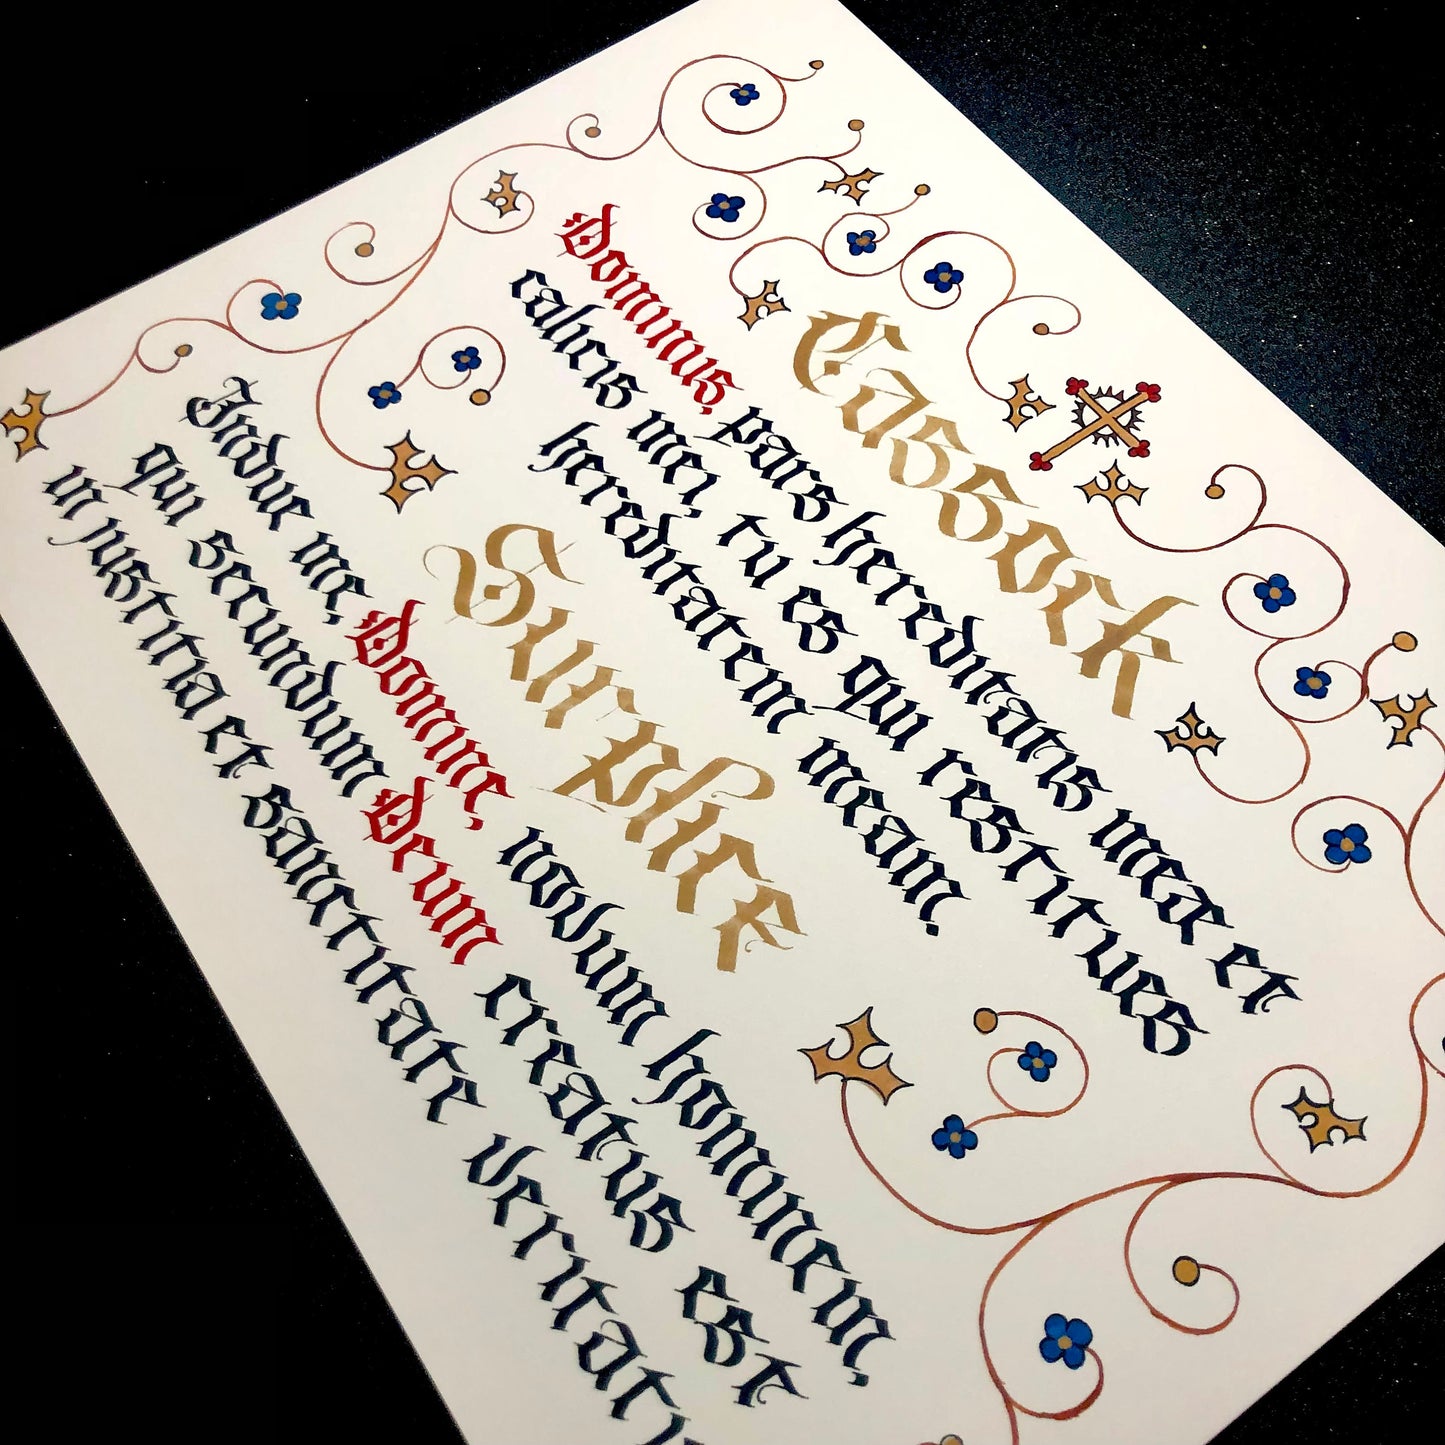 Cassock
Dominus, pars hereditatis meæ et
calicis mei, tu es qui restitues
hereditatem meam.
Surplice
Indue me, Domine, novum hominem,
qui secundum Deum creatus est
in justitia et sanctitate veritati